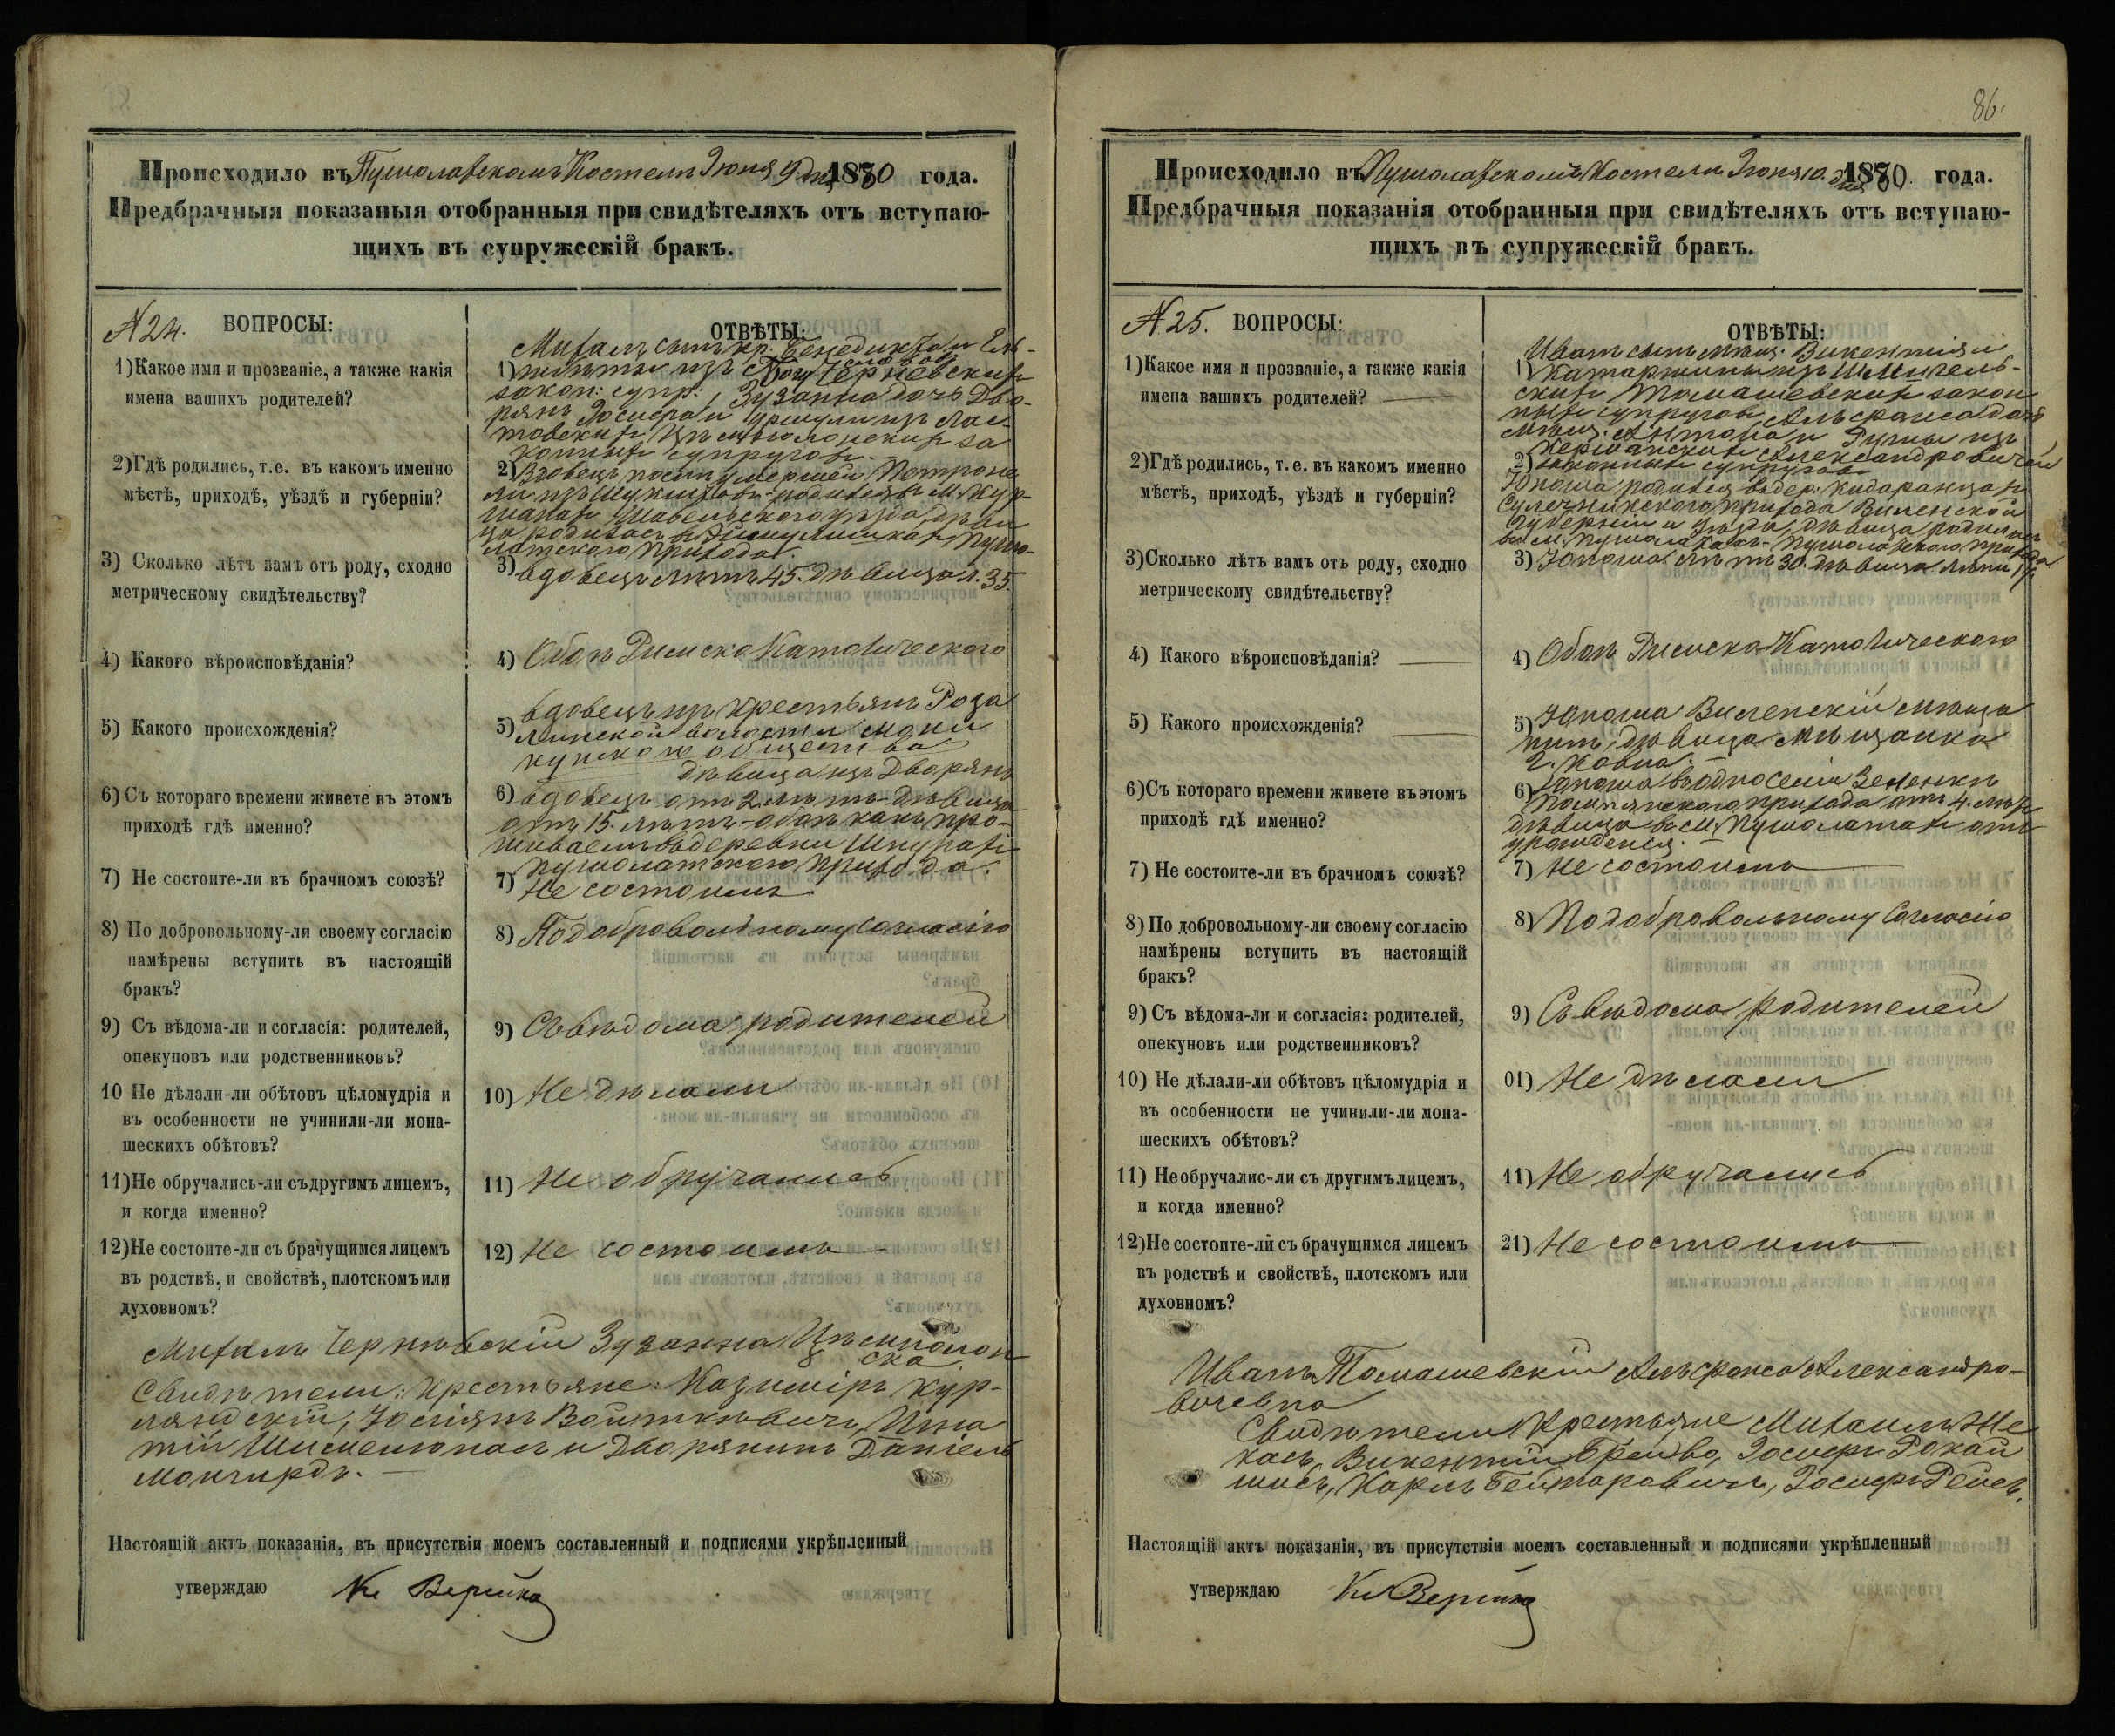 Происходило въ Пушолатскомъ Костелѣ Іюня 9 дня 1880 года.
Предбрачныя показаныя отобранныя при свидѣтеляхъ отъ вступаю-
щихъ въ супружескій бракъ.
№ 24. ВОПРОСЫ:
1) Какое имя и прозваніе, а также какія
имена вашихъ родителей?
2) Гдѣ родились, т.е. въ какомъ именно
мѣстѣ, приходѣ, уѣздѣ и губерніи?
3) Сколько лѣтъ вамъ отъ роду, сходно
метрическому свидѣтельству?
4) Какого вѣроисповѣданія?
5) Какого происхожденія?
6) Съ котораго времени живете въ этомъ
приходѣ гдѣ именно?
7) Не состоите-ли въ брачномъ союзѣ?
8) По добровольному-ли своему согласію
намѣрены вступить въ настоящій
бракъ?
9) Съ вѣдома-ли и согласія: родителей,
опекуновъ или родственниковъ?
10 Не дѣлали-ли обѣтовъ цѣломудрія и
въ особенности не учинили-ли мона-
шескихъ обѣтовъ?
11) Не обручались-ли съ другимъ лицемъ,
и когда именно?
12) Не состоите-ли съ брачущимся лицемъ
въ родствѣ, и свойствѣ, плотскомъ или
духовномъ?
ОТВѢТЫ:
Михалъ сынъ кр. Бенедикта и Ель-
1) изъ Чернѣвскихъ
закон: супр., Зузанна дочь Дво-
рянъ Іосифа и Уршули изъ
законныхъ супруговъ.
2) Вдовецъ послѣ умершей Петроне
ли изъ родился въ М. Кур-
шанахъ Шавельскаго уѣзда, дѣви
ца родилась въ Пушо-
латскаго прихода.
3) вдовецъ лѣтъ 45. дѣвица л. 35.
4) Обоѣ Римско Католическаго
5) вдовецъ изъ крестьянъ Роза
линской волости
общества
дѣвица изъ Дворянъ
6) вдовецъ отъ 2 лѣтъ - дѣвица
отъ 15. лѣтъ - обоѣ какъ про-
живаемъ въ деревни
Пушолатскаго прихода.
7) Не состоимъ
8) По добровольному согласію
9) Съ вѣдома родителей
10) Не дѣлали
11) Не обручались
12) Не состоимъ
Михалъ Чернѣвскій Зузанна
ска
Свидѣтели: Крестьяне: Казиміръ Кур-
ляндскій, Войткѣвичъ, Игна
тій и Дворянинъ Даніель
Монгирдъ. —
Настоящій актъ показанія, въ присутствіи моемъ составленный и подписями укрѣпленный
утверждаю
86.
Происходило въ Пушолатскомъ Костелѣ Іюня 10. дня 1880. года.
Предбрачныя показанія отобранныя при свидѣтеляхъ отъ вступаю-
щихъ въ супружескій бракъ.
№ 25. ВОПРОСЫ:
1) Какое имя и прозваніе, а также какія
имена вашихъ родителей?
2) Гдѣ родились, т.е. въ какомъ именно
мѣстѣ, приходѣ, уѣздѣ и губерніи?
3) Сколько лѣтъ вамъ отъ роду, сходно
метрическому свидѣтельству?
4) Какого вѣроисповѣданія?
5) Какого происхожденія?
6) Съ котораго времени живете въ этомъ
приходѣ гдѣ именно?
7) Не состоите-ли въ брачномъ союзѣ?
8) По добровольному-ли своему согласію
намѣрены вступить въ настоящій
бракъ?
9) Съ вѣдома-ли и согласія: родителей,
опекуновъ или родственниковъ?
10) Не дѣлали-ли обѣтовъ цѣломудрія и
въ особенности не учинили-ли мона-
шескихъ обѣтовъ?
11) Не обручалис-ли съ другимъ лицемъ,
и когда именно?
12) Не состоите-ли съ брачущимся лицемъ
въ родствѣ и свойствѣ, плотскомъ или
духовномъ?
ОТВѢТЫ:
Иванъ сынъ мѣщ. Викентія и
1) Катаржины изъ
скихъ Томашевскихъ закон
ныхъ супруговъ, Альфонса дочь
мѣщ. Антона и изъ
Александровичей
2) законныхъ супруговъ
Юноша родился въ дер:
прихода Виленской
Губерніи и уѣзда, дѣвица родилась
въ М. Пушолатахъ - Пушолатскаго прихода
3) Юноша лѣтъ 30. дѣвица лѣтъ
4) Обоѣ Римско-Католическаго
5) Юноша Виленскій мѣща
нинъ, дѣвица мѣщанка
г. Ковна.
6) Юноша въ односеліи
прихода отъ 4. лѣтъ
дѣвица въ М. Пушолатахъ отъ
урожденія. —
7) Не состоимъ
8) По добровольному согласію
9) Съ вѣдома родителей
01) Не дѣлали
11) Не обручались
21) Не состоимъ
Иванъ Томашевскій Альфонса Александро-
вичевна
Свидѣтели Крестьяне Михаилъ Же
касъ, Викентій Іосифъ
Карлъ Іосифъ
Настоящій актъ показанія, въ присутствіи моемъ составленный и подписями укрѣпленный
утверждаю